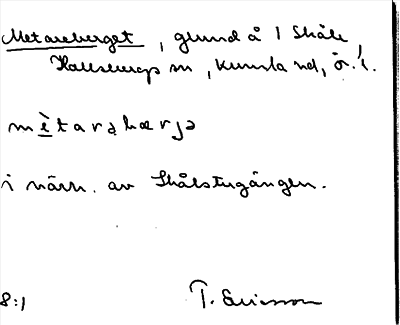 Metareberget, grund å i Skåle,
Hallsberg sn, Kumla hd, ö.l.
mètarabærja
i närh. av Skålstugängen.
8:1 T. Ericsson